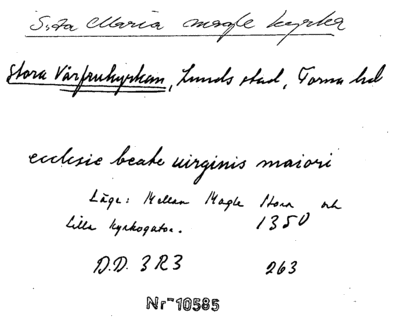 S:ta Maria magle kyrka
Stora Vårfrukyrkan, Lunds stad, Torna hd
ecclesie beate uirginis maiori
Läge: Mellan Magle Stora och
Lilla Kyrkogator. 1350
D.D. 3 R3 263
Nr 10585